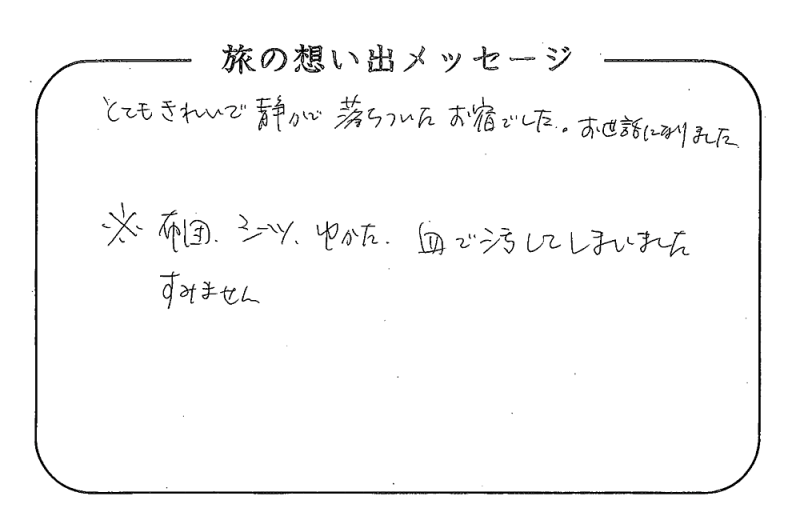 旅の想い出メッセージ
とてもきれいで静かで落ちついたお宿でした。お世話になりました
※布団、シーツ、ゆかた、血で汚してしまいました
すみません